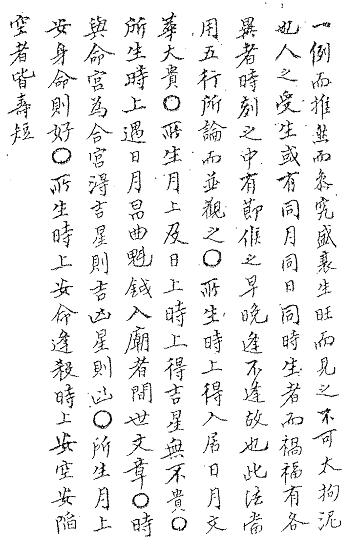 一例而推然而參究盛衰生旺而見之不可太拘泥
也人之受生或有同月同日同時生者而禍福有各
異者時刻之中有節候之早晚逢不逢故也此法當
用五行所論而並觀之〇所生時上得入居日月文
華大貴〇所生月上及日上時上得吉星無不貴〇
所生時上遇日月昌曲魁鉞入廟者間世文章〇時
與命宮為合宮得吉星則吉凶星則凶〇所生月上
安身命則好〇所生時上安命逢殺時上安空安陷
空者皆壽短